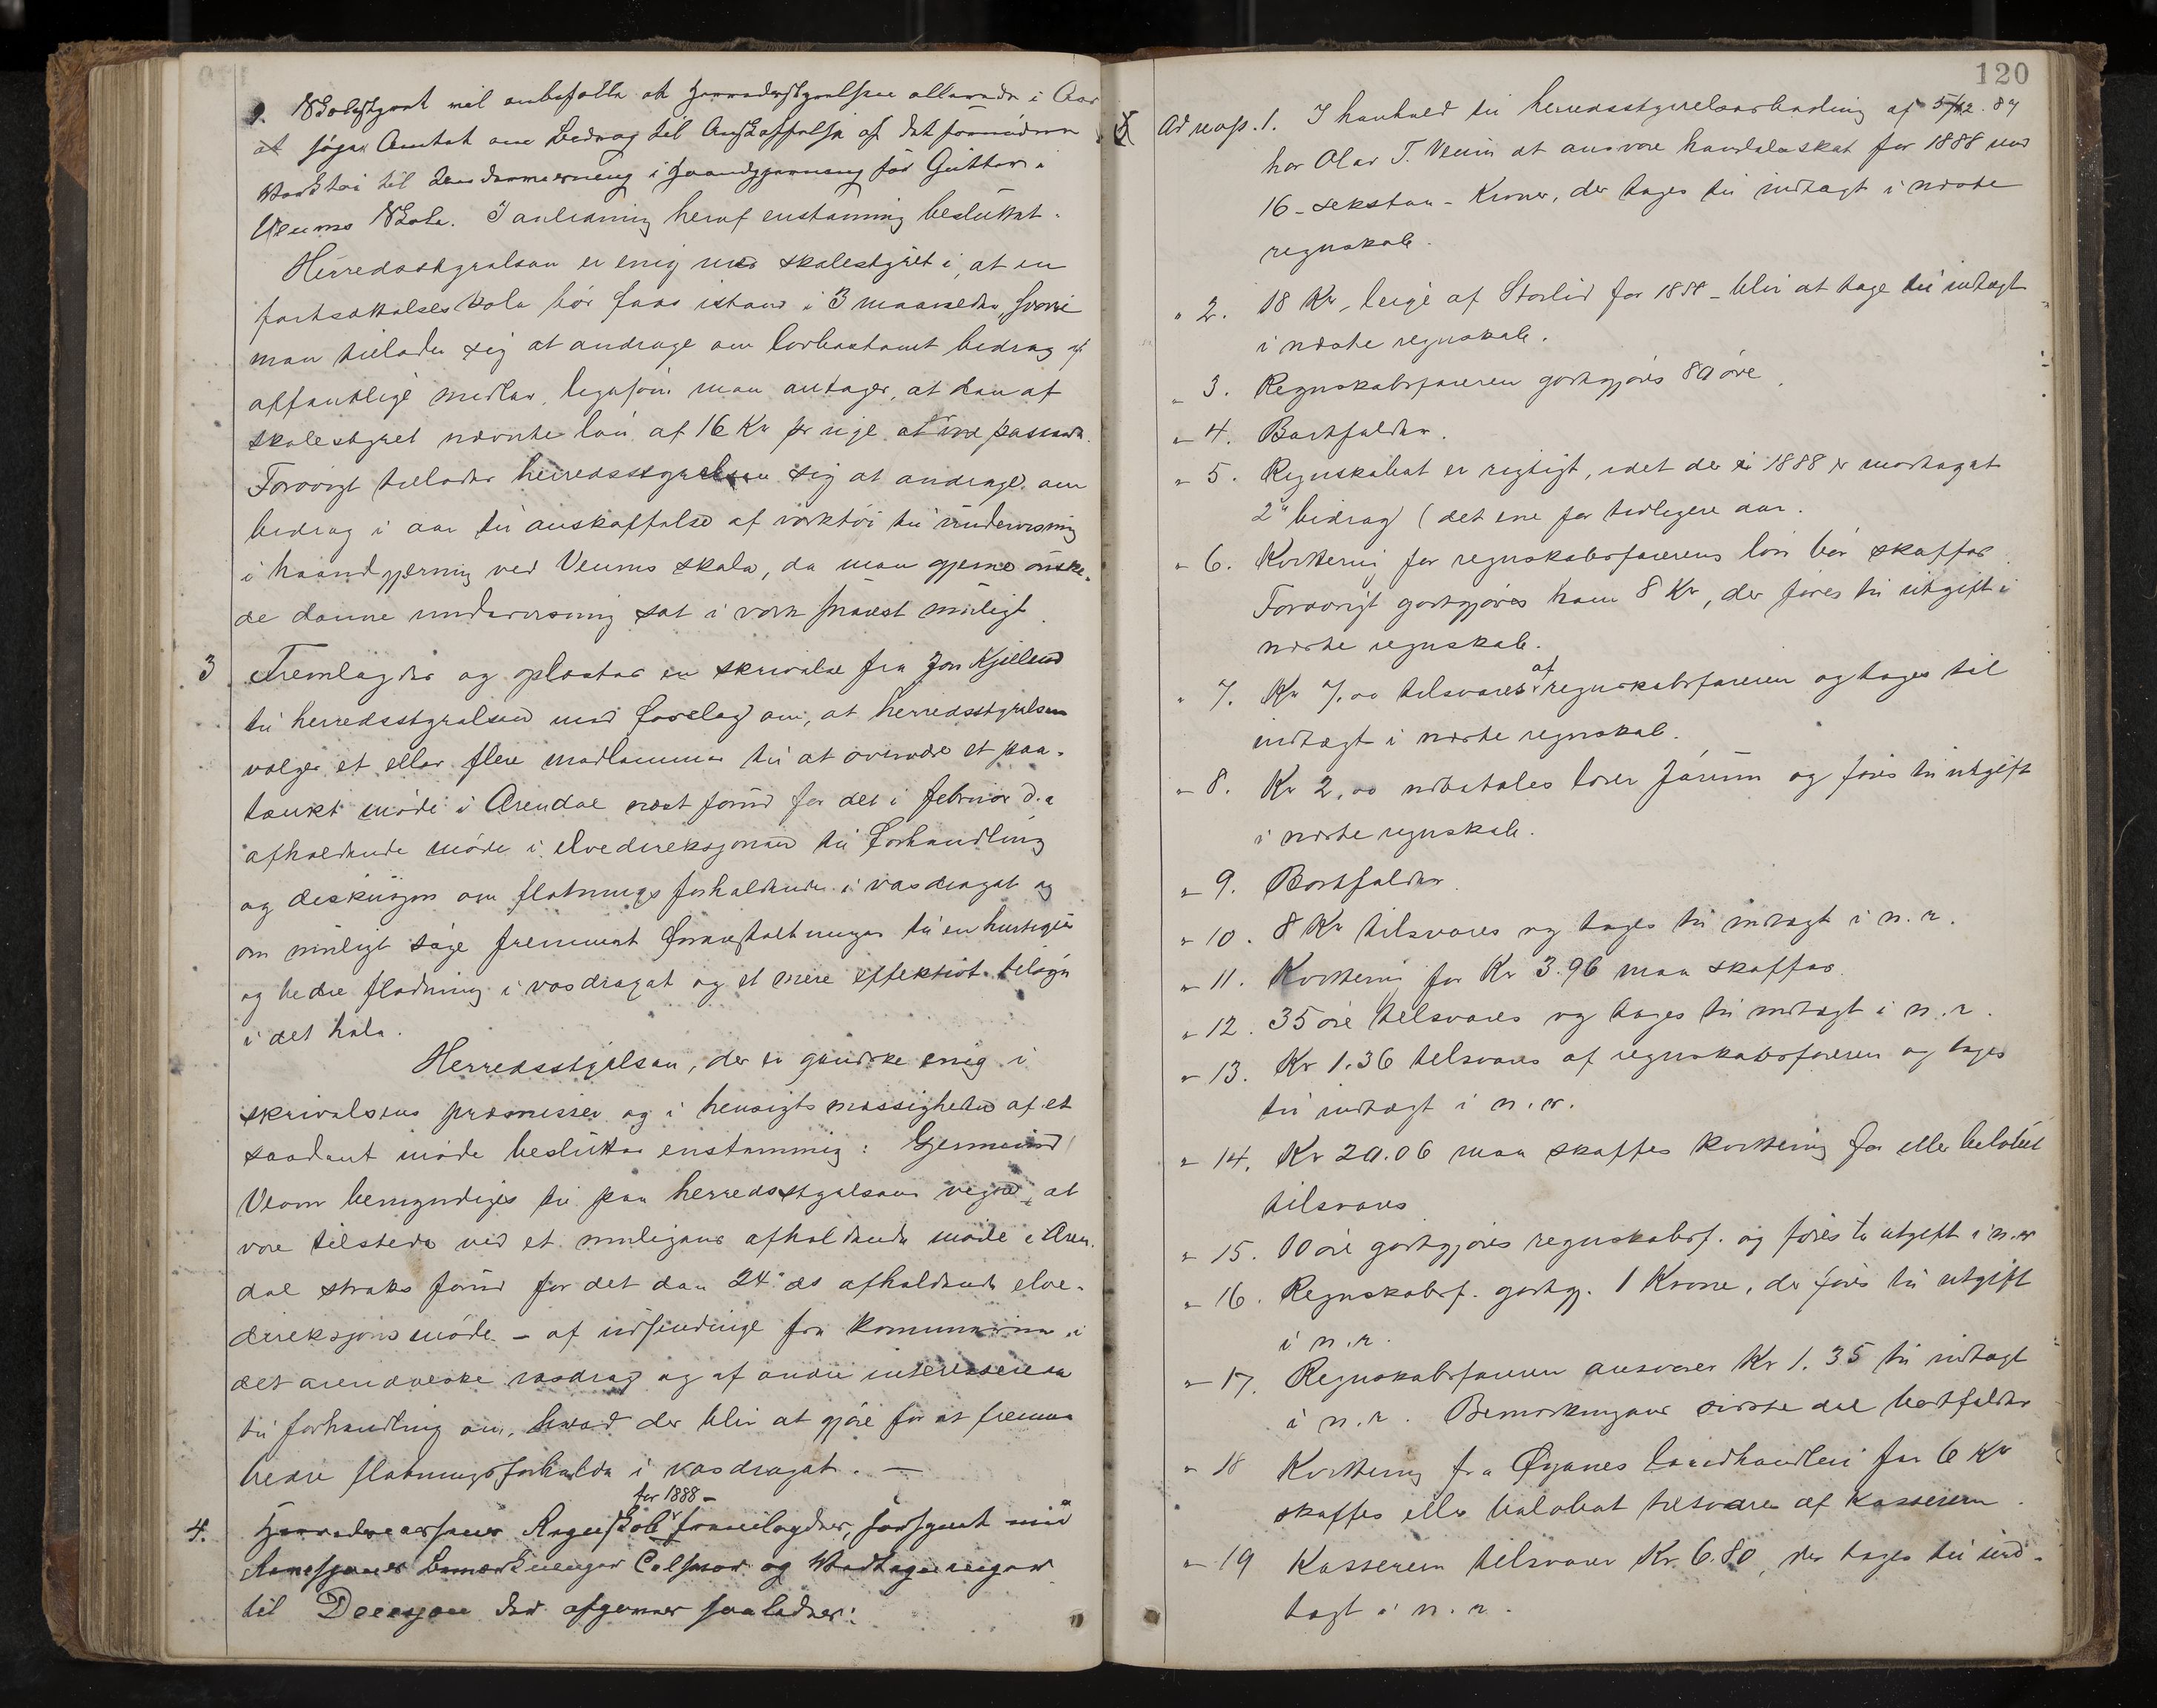 9. Skolestyret vil anbefalle at Herredsstyrelsen allerede i Aar
at söge Amtet om Bidrag til Anskaffelse af det fornödne
Værktöi til Undervisning i Haandgjerning för Gutter i
Veums Skole. I anledning heraf enstemmig besluttet:
Herredsstyrelsen er enig med skolestyret i, at en
fortsættelsesskole bör faaes istand i 3 maaneder, hvori
man tillader sig at andrage om lovbestemt bidrag af
offentlige midler, ligesom man antager, at den af
skolestyret nævnte lön af 16 Kr pr uge at være passende.
Forövrigt tillader herredsstyrelsen sig at andrage om
bidrag i aar til anskaffelse af verktöi til undervisning
i haandgjerning ved Veums skole, da man gjerne önske-
de denne undervisning sat i værk snarest muligt.
3 Fremlagdes og oplæstes en skrivelse fra Jon Kjilleud
til herredsstyrelsen med forslag om, at herredsstyrelsen
vælger et eller flere medlemmer til at overvære et paa-
tænkt möde i Arendal næst forud for det i februar d.a
afholdende möde i elvedireksjonen til forhandling
og diskusjon om flötningsforholdende i vasdraget og
om muligt söge fremmet foranstaltninger til en hurtigere
og bedre flødning i vasdraget og et mere effektivt tilsyn
i det hele.
Herredsstyrelsen, der er ganske enig i
skrivelsens præmisser og i hensigtsmæssigheden af et
saadant möde beslutter enstemmig: Gjermund
Veum bemyndiges til paa herredsstyrelsens vegne at
være tilstede ved et muligens afholdende möde i Aren-
dal straks forud for det den 24de ds afholdende elve-
direksjonsmöde – af udsendinge fra kommunerne i
det arendalske vasdrag og af andre interesserede
til forhandling om, hvad der blir at gjöre for at fremme
bedre flötningsforholde i vasdraget. —
for 1888 –
4. Herredskassens Regnskab fremlagdes, forsynet med
Revisjonens Bemærkninger Besvar og Vedtegninger
til Decisjon der afgenner saaledes:
120
Ad neap. 1. I henhold til herredsstyrelsesbeslutning af 5/12. 87
har Olav T. Veum at ansvare handelsskat for 1888 med
16 – seksten – Kroner, der tages til indtægt i næste
regnskab.
" 2. 18 Kr, leige af Storlid for 1888 – blir at tage til indtægt
i næste regnskab.
" 3. Regnskabsföreren godtgjöres 80 öre.
" 4. Bortfalder.
" 5. Regnskabet er rigtigt, idet der i 1888 er modtaget
2de bidrag (det ene for tidligere aar.
" 6. Kvittering for regnskabsförerens lön bör skaffes.
Forövrigt godtgjöres ham 8 Kr, der föres til utgift i
næste regnskab.
" 7. Kr 7,00 tilsvares af regnskabsföreren og tages til
indtægt i næste regnskab.
" 8. Kr 2,00 udbetales lærer Jörum og föres til utgift
i næste regnskab.
" 9. Bortfalder.
" 10. 8 Kr tilsvares og tages til indtægt i n. r.
" 11. Kvittering for Kr 3.96 maa skaffes.
" 12. 35 öre tilsvares og tages til indtægt i n. r.
" 13. Kr 1.36 tilsvares af regnskabsföreren og tages
til indtægt i n. r.
" 14. Kr 20.06 maa skaffes kvittering for eller belöbet
tilsvares
" 15. 10 öre godtgjöres regnskabsf. og föres til utgift i n. r
" 16. Regnskabsf. godtg. 1 Krone, der föres til utgift
i n. r.
" 17. Regnskabsföreren ansvarer Kr 1.35 til indtægt
i n. r. Bemerkningens sidste del bortfalder
" 18 Kvittering fra Øyanes landhandleri for 6 Kr
skaffes eller beløbet tilsvares af kassereren.
" 19 Kassereren tilsvarer Kr. 6.80, der tages til ind-
tægt i n. r.